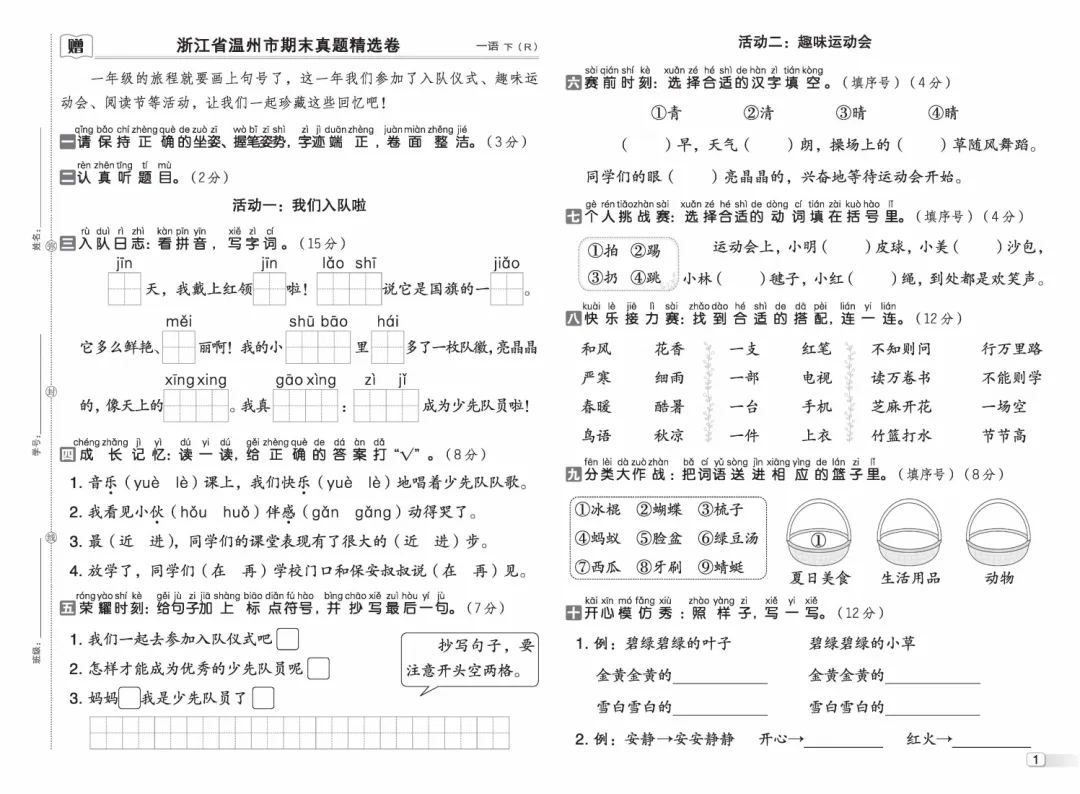 赠
浙江省温州市期末真题精选卷
一语 下（R）
一年级的旅程就要画上句号了，这一年我们参加了入队仪式、趣味运
动会、阅读节等活动，让我们一起珍藏这些回忆吧！
qǐng bǎo chí zhèng què de zuò zī wò bǐ zī shì zì jì duān zhèng juàn miàn zhěng jié
一 请保持正确的坐姿、握笔姿势，字迹端正，卷面整洁。（3分）
rèn zhēn tīng tí mù
二 认真听题目。（2分）
活动一：我们入队啦
rù duì rì zhì kàn pīn yīn xiě zì cí
三 入队日志：看拼音，写字词。（15分）
jīn jīn lǎo shī jiǎo
天，我戴上红领 啦！ 说它是国旗的一 。
měi shū bāo hái
它多么鲜艳、 丽啊！我的小 里 多了一枚队徽，亮晶晶
xīng xing gāo xìng zì jǐ
的，像天上的 。我真 ： 成为少先队员啦！
chéng zhǎng jì yì dú yi dú gěi zhèng què de dá àn dǎ
四 成长记忆：读一读，给正确的答案打“√”。（8分）
1. 音乐（yuè lè）课上，我们快乐（yuè lè）地唱着少先队队歌。
2. 我看见小伙（hǒu huǒ）伴感（gǎn gǎng）动得哭了。
3. 最（近 进），同学们的课堂表现有了很大的（近 进）步。
4. 放学了，同学们（在 再）学校门口和保安叔叔说（在 再）见。
róng yào shí kè gěi jù zi jiā shàng biāo diǎn fú hào bìng chāo xiě zuì hòu yí jù
五 荣耀时刻：给句子加上标点符号，并抄写最后一句。（7分）
1. 我们一起去参加入队仪式吧
2. 怎样才能成为优秀的少先队员呢
3. 妈妈 我是少先队员了
抄写句子，要
注意开头空两格。
姓名：
学号：
班级：
弥
封
线
活动二：趣味运动会
sài qián shí kè xuǎn zé hé shì de hàn zì tián kòng
六 赛前时刻：选择合适的汉字填空。（填序号）（4分）
①青 ②清 ③晴 ④睛
（ ）早，天气（ ）朗，操场上的（ ）草随风舞蹈。
同学们的眼（ ）亮晶晶的，兴奋地等待运动会开始。
gè rén tiǎo zhàn sài xuǎn zé hé shì de dòng cí tián zài kuò hào lǐ
七 个人挑战赛：选择合适的动词填在括号里。（填序号）（4分）
①拍 ②踢
③扔 ④跳
运动会上，小明（ ）皮球，小美（ ）沙包，
小林（ ）毽子，小红（ ）绳，到处都是欢笑声。
kuài lè jiē lì sài zhǎo dào hé shì de dā pèi lián yi lián
八 快乐接力赛：找到合适的搭配，连一连。（12分）
和风 花香 一支 红笔 不知则问 行万里路
严寒 细雨 一部 电视 读万卷书 不能则学
春暖 酷暑 一台 手机 芝麻开花 一场空
鸟语 秋凉 一件 上衣 竹篮打水 节节高
fēn lèi dà zuò zhàn bǎ cí yǔ sòng jìn xiāng yìng de lán zi lǐ
九 分类大作战：把词语送进相应的篮子里。（填序号）（8分）
①冰棍 ②蝴蝶 ③梳子
④蚂蚁 ⑤脸盆 ⑥绿豆汤
⑦西瓜 ⑧牙刷 ⑨蜻蜓
①
夏日美食 生活用品 动物
kāi xīn mó fǎng xiù zhào yàng zi xiě yi xiě
十 开心模仿秀：照样子，写一写。（12分）
1. 例：碧绿碧绿的叶子 碧绿碧绿的小草
金黄金黄的 金黄金黄的
雪白雪白的 雪白雪白的
2. 例：安静→安安静静 开心→ 红火→
1